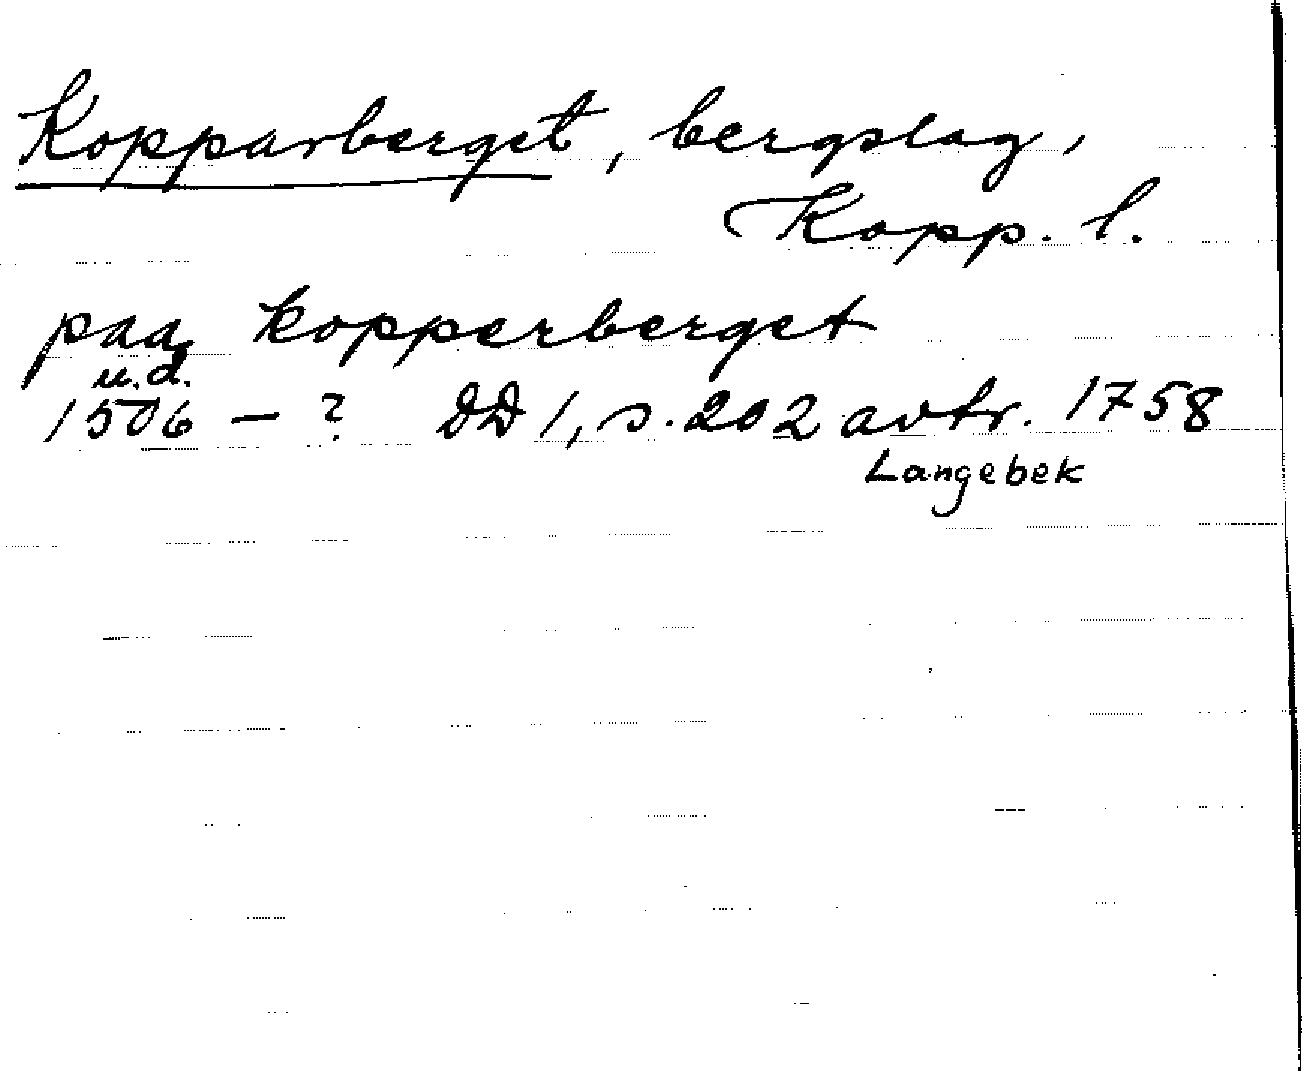 Kopparberget, bergslag,
Kopp. l.
paa kopperberget
u.d.
1506 – ? DD 1, s. 202 avtr. 1758
Langebek